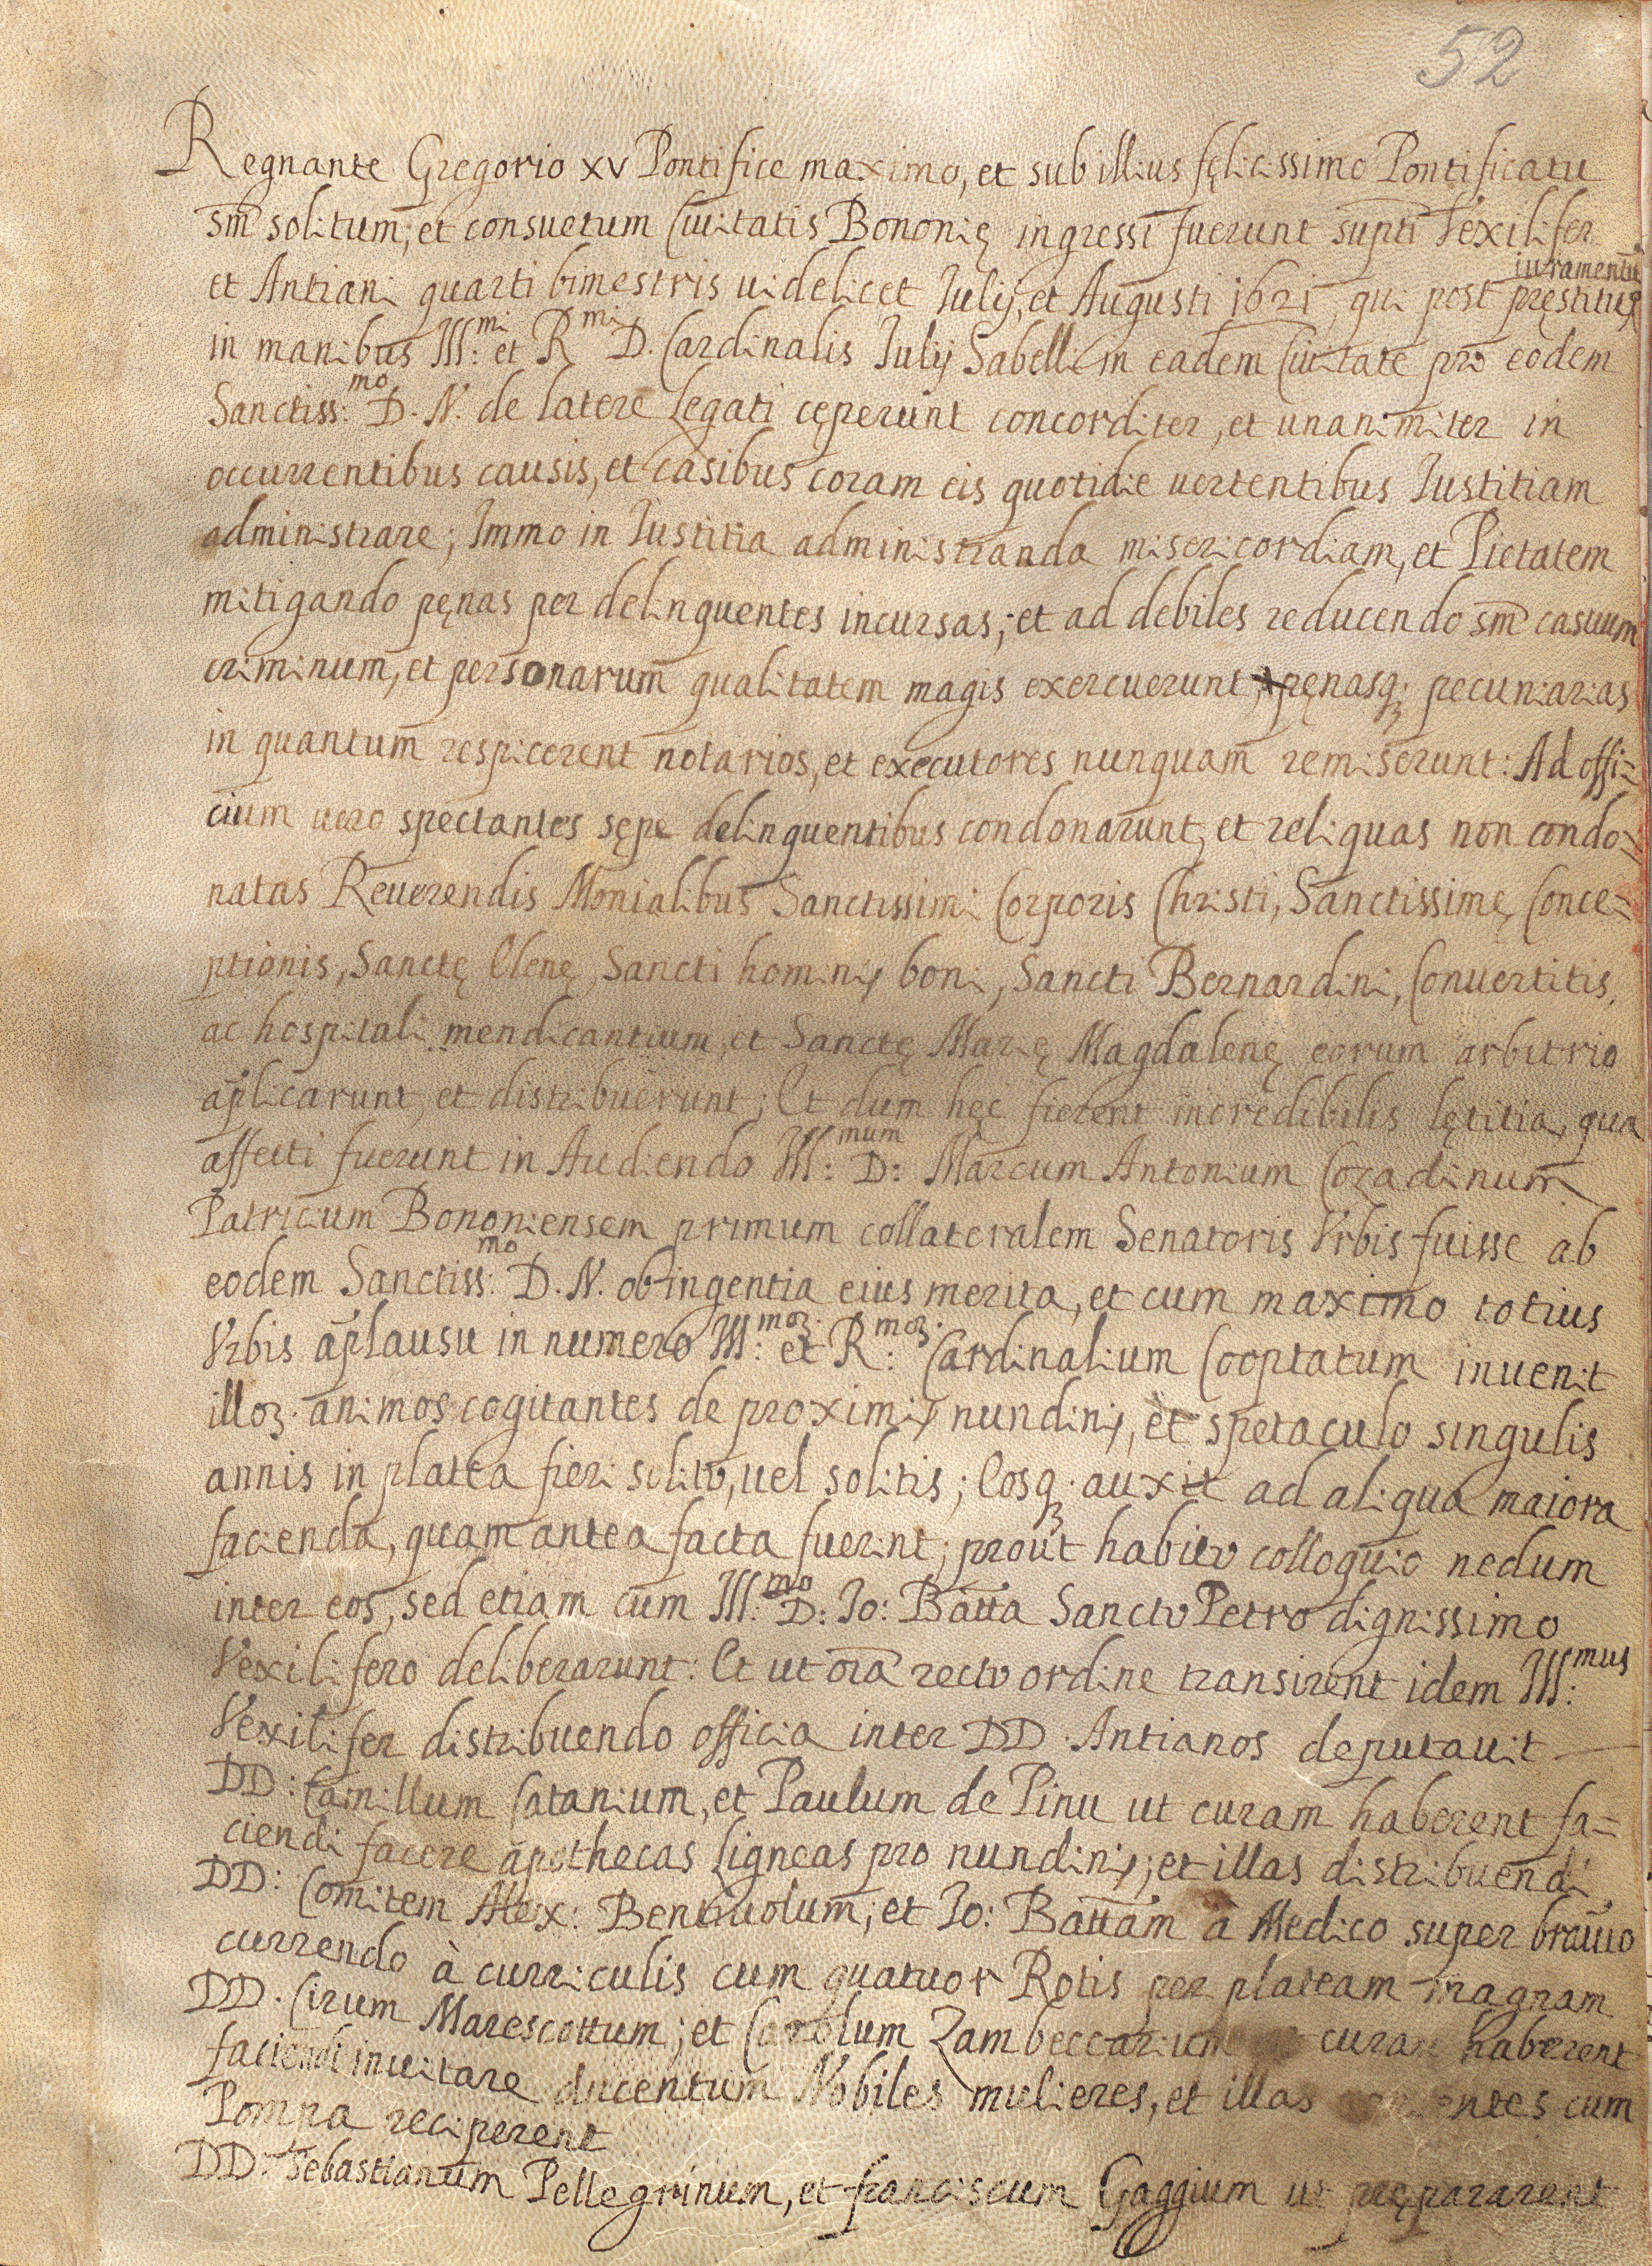 52
Regnante Gregorio XV Pontifice maximo, et sub illius fęlicissimo Pontificatu
sm̄ solitum, et consuetum Ciuitatis Bononię ingressi fuerunt supti Vexilifer
et Antiani quarti bimestris uidelicet Iulij, et Augusti 1621, qui post pręstitu iuramentū
in manibus Ill:mi et Rmi D. Cardinalis Iulij Sabelli in eadem Ciuitate pro eodem
Sanctiss:mo D. N. de latere Legati cęperunt concorditer, et unanimiter in
occurrentibus causis, et casibus coram eis quotidie uertentibus Iustitiam
administrare; Immo in Iustitia administranda misericordiam, et Pietatem
mitigando pęnas per delinquentes incursas; et ad debiles reducendo sm̄ casuum
criminum, et personarum qualitatem magis exercuerunt, pęnasq; pecuniarias
in quantum respicerent notarios, et executores nunquam remiserunt: Ad offi=
cium uero spectantes sępe delinquentibus condonarunt, et reliquas non condo=
natas Reuerendis Monialibus Sanctissimi Corporis Christi, Sanctissimę Conce=
ptionis, Sanctę Elenę, Sancti hominis boni, Sancti Bernardini, Conuertitis,
ac hospitali mendicantium, et Sanctę Marię Magdalenę eorum arbitrio
ap̄licarunt, et distribuerunt; Et dum hęc fierent incredibilis lętitia, qua
affecti fuerunt in Audiendo Ill:mum D: Marcum Antonium Cozadinum
Patricium Bononiensem primum collateralem Senatoris Vrbis fuisse ab
eodem Sanctiss:mo D. N. ob ingentia eius merita, et cum maximo totius
Vrbis ap̄lausu in numero Ill:moꝝ. et R:moꝝ. Cardinalium Cooptatum inuenit
illoꝝ. animos cogitantes de proximis nundinis, et spetaculo singulis
annis in platea fieri solito, uel solitis; Eosq; auxit ad aliqua maiora
facienda, quam antea facta fuerint; prout habito colloquio nedum
inter eos, sed etiam cum Ill:mo D: Io: Batta Sancto Petro dignissimo
Vexilifero deliberarunt: Et ut oīa recto ordine transirent idem Ill:mus
Vexilifer distribuendo officia inter DD. Antianos deputauit
DD: Camillum Catanium, et Paulum de Pinu ut curam haberent fa=
ciendi facere apothecas ligneas pro nundinis; et illas distribuendi
DD: Comitem Alex: Bentiuolum, et Io: Battam à Medico super brauio
currendo à curriculis cum quatuor Rotis per plateam magnam
DD. Cirum Marescottum; et Carolum Zambeccarium curam haberent
faciendi inuitare ducentum Nobiles mulieres, et illas cum
Pompa reciperent
DD: Sebastianum Pellegrinum, et franciscum Gaggium ut prępararent